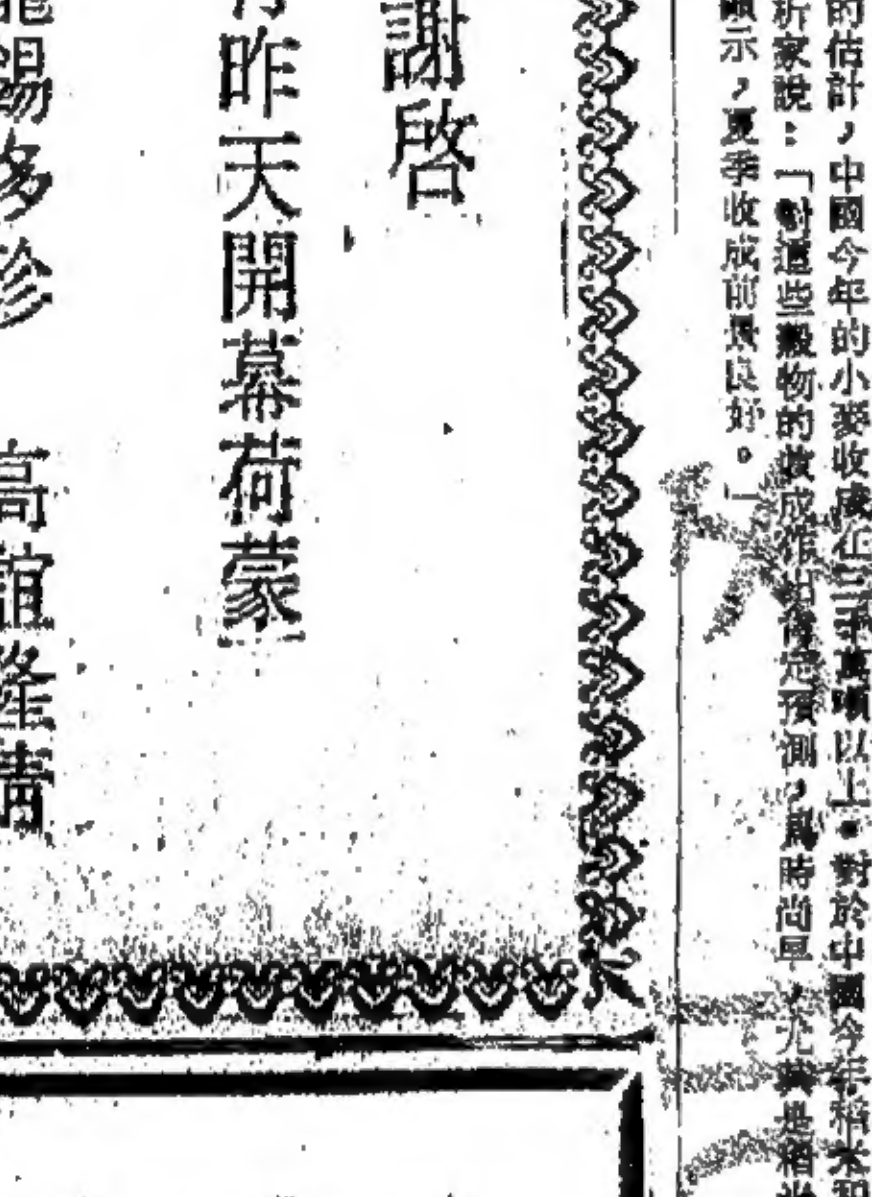 的估計，中國今年的小麥收成在三千萬噸以上。對於中國今年稻米和
析家說：「對這些穀物的收成作出肯定預測，爲時尚早，尤其是稻米
顯示，夏季收成前景良好。」
謝啓
昨天開幕荷蒙
寵錫多珍　高誼隆情